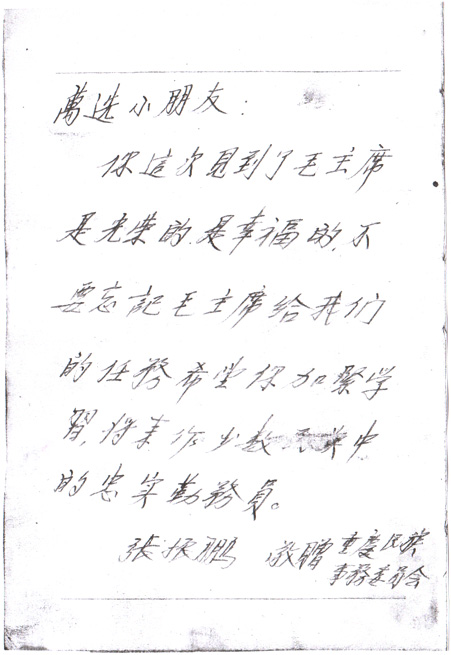 萬选小朋友：
你這次見到了毛主席
是光榮的，是幸福的，不
要忘記毛主席给我们
的任務希望你加緊学
習，将来作少数民族中
的忠实勤務員。
張振鵬 敬贈 重慶民族
事務委员会